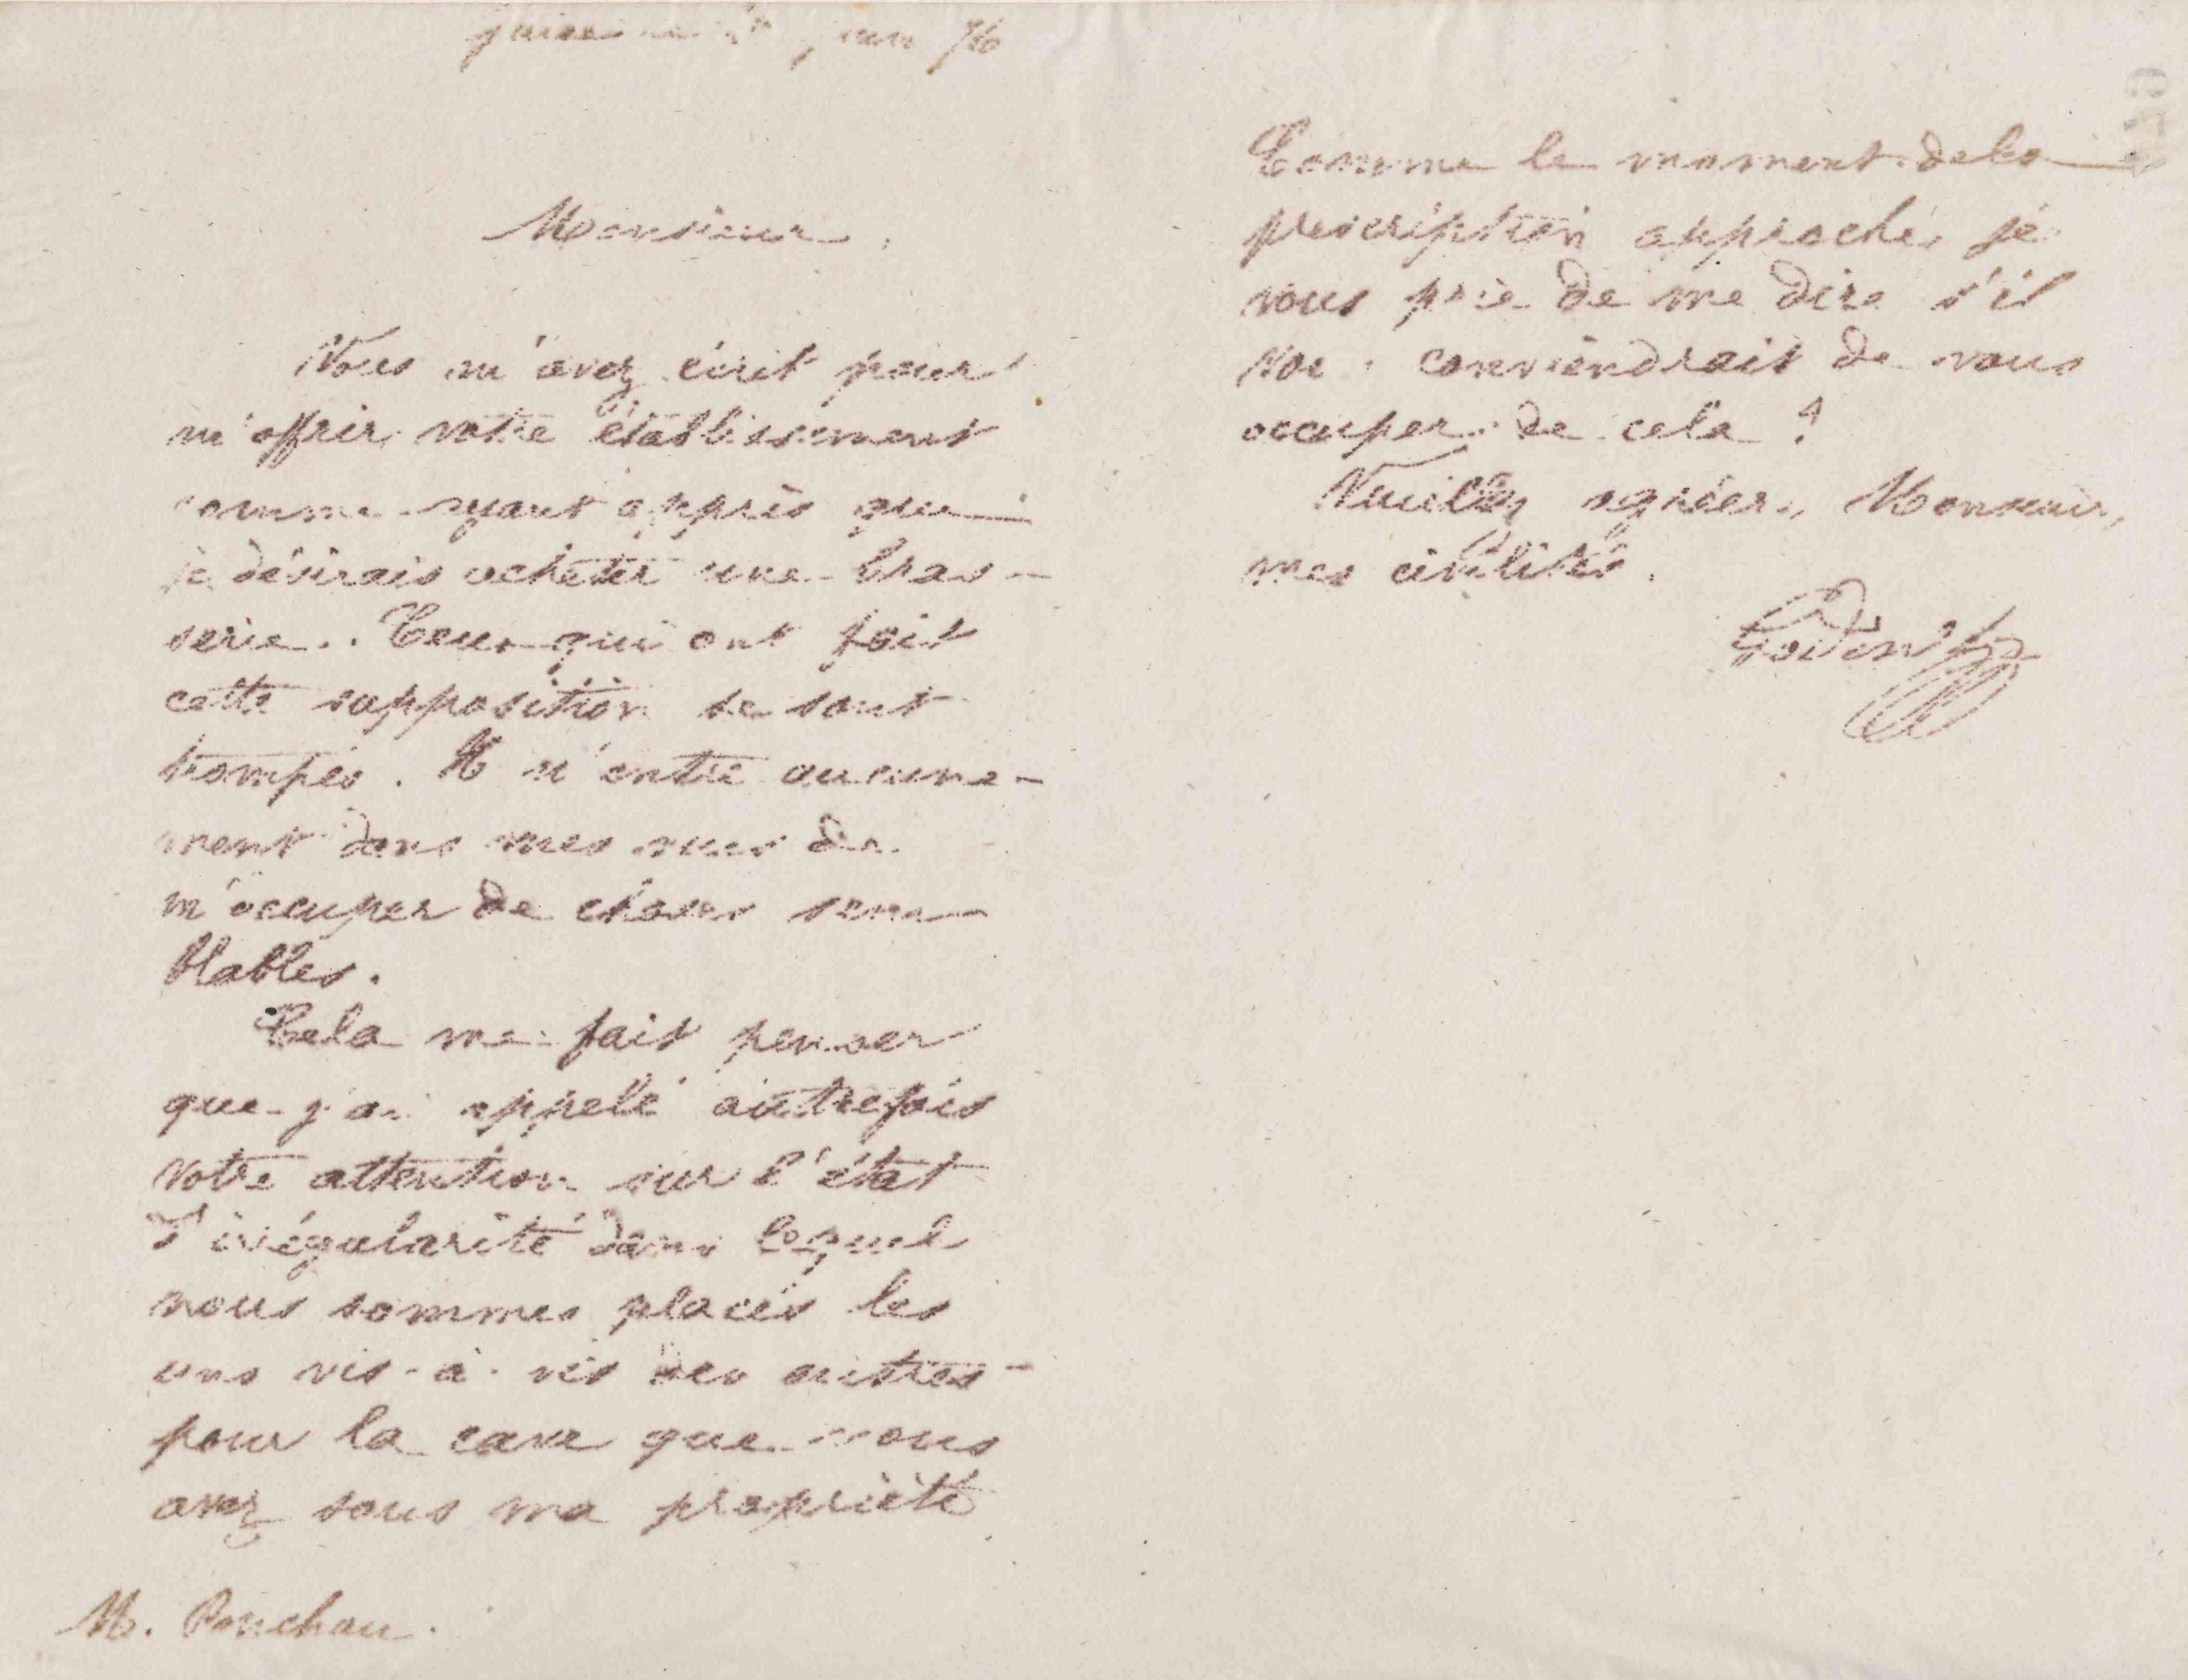 Guise juin 76
Monsieur,
Vous m'avez écrit pour
m'offrir votre établissement
comme ayant appris que
je désirais acheter une bras-
serie. Ceux qui ont fait
cette supposition se sont
trompés. Il n'entre aucune-
ment dans mes vues de
m'occuper de choses sem-
blables.
Cela me fait penser
que j'ai appelé autrefois
votre attention sur l'état
d'irrégularité dans lequel
nous sommes placés les
uns vis-à-vis des autres
pour la cave que vous
avez sous ma propriété
M. Ponchau.
Comme le moment de la
prescription approche, je
vous prie de me dire s'il
vous conviendrait de vous
occuper de cela ?
Veuillez agréer, Monsieur,
mes civilités.
Godin